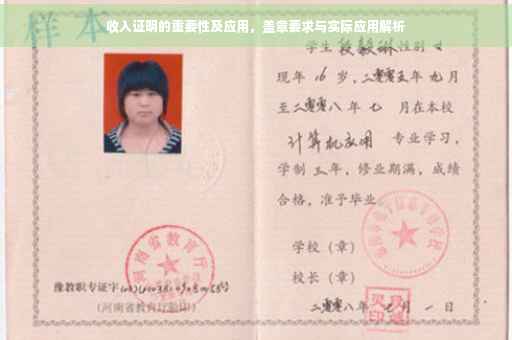 收入证明的重要性及应用，盖章要求与实际应用解析
样本
学生 段毅琳 性别 女
现年 16 岁，二零零五年 九 月
至二零零八年 七 月在本校
计算机应用 专业学习，
学制 三 年，修业期满，成绩
合格，准予毕业。
学校（章）
校长（章）
二零零八年 月 一 日
河南省教育厅
豫教职专证字
（河南省教育厅验印）